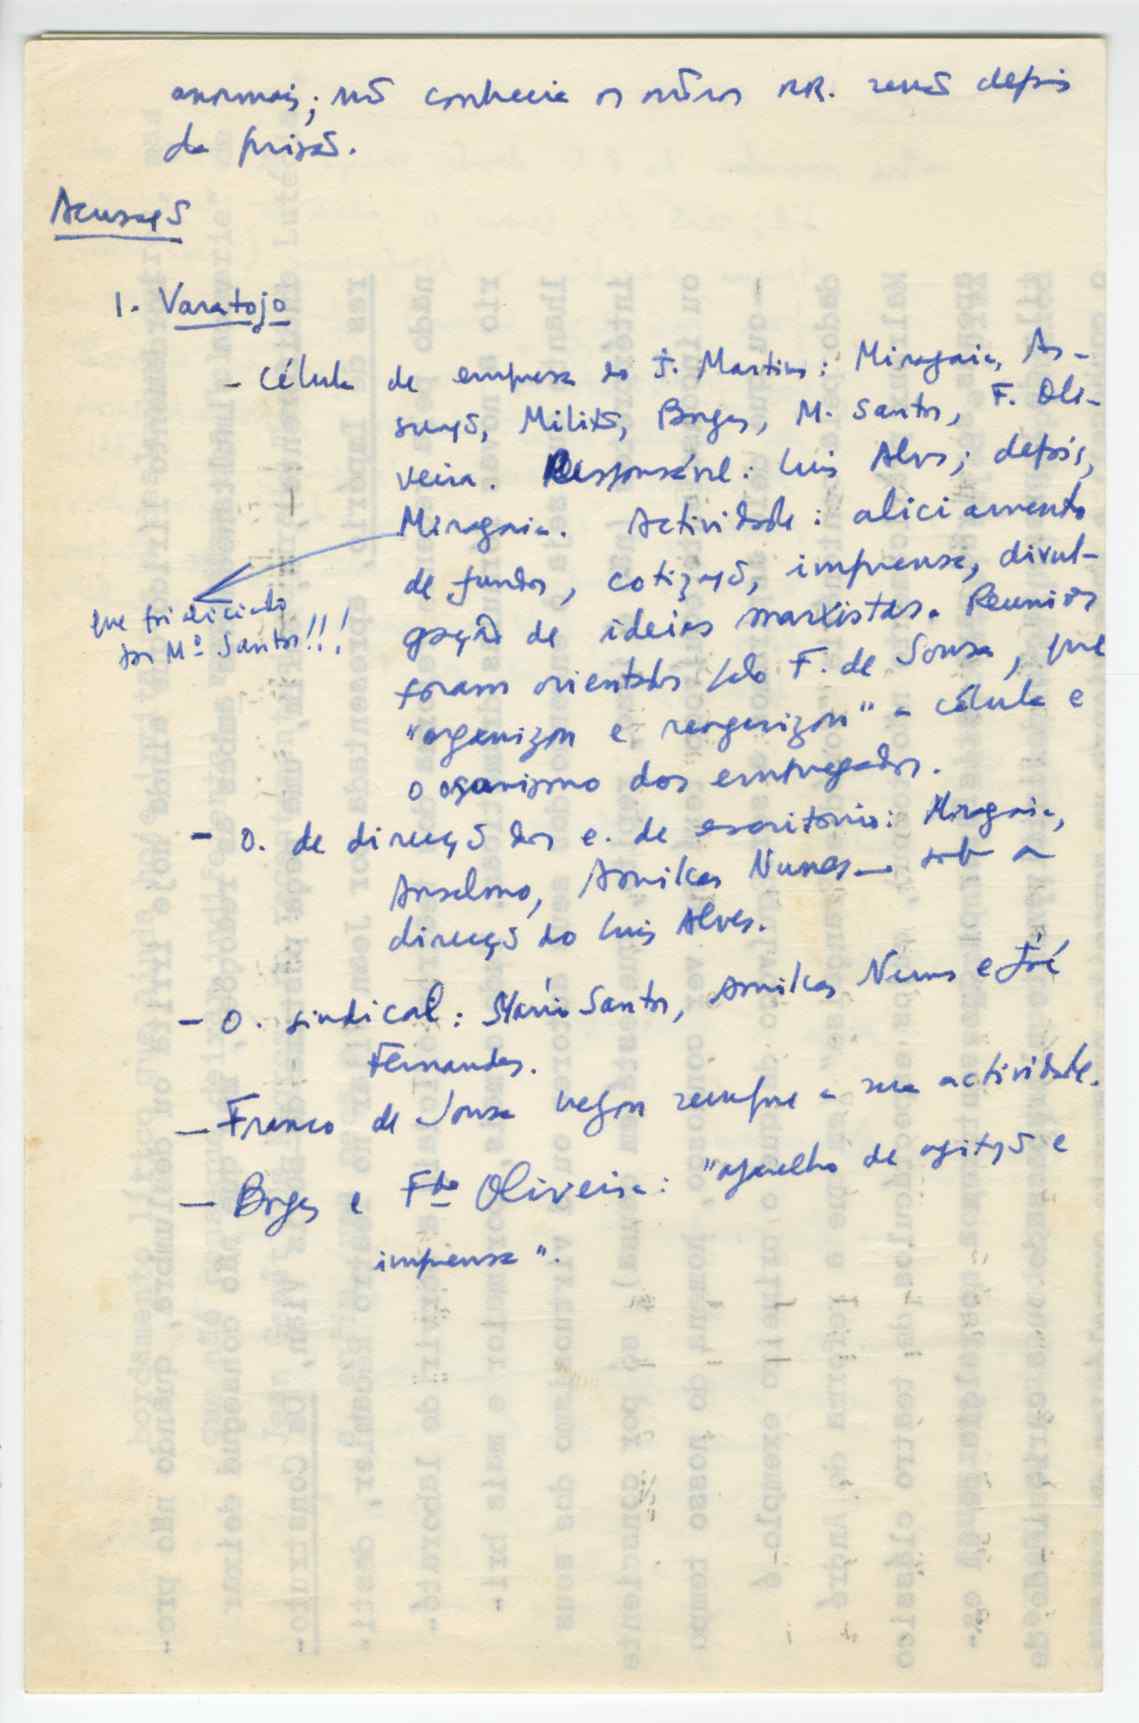 anormais; não conhecia os outros RR. senão depois
da prisão.
Acusação
1. Varatojo
- Célula de empresa do J. Martins: Miragaia, As-
sunção, Militão, Borges, M. Santos, F. Oli-
veira. Responsável: Luis Alves; depois,
Miragaia. Actividade: aliciamento
de fundos, cotização, imprensa, divul-
gação de ideias marxistas. Reuniões
foram orientadas pelo F. de Sousa, que
"organizou e reorganizou" a célula e
o organismo dos empregados.
que foi aliciado
por Mº Santos!!!
- O. de direcção dos e. de escritório: Miragaia,
Anselmo, Amilcar Nunes — sob a
direcção do Luis Alves.
- O. sindical: Mário Santos, Amilcar Nunes e José
Fernandes.
- Franco de Sousa negou sempre a sua actividade.
- Borges e Fdo Oliveira: "aparelho de agitação e
imprensa".